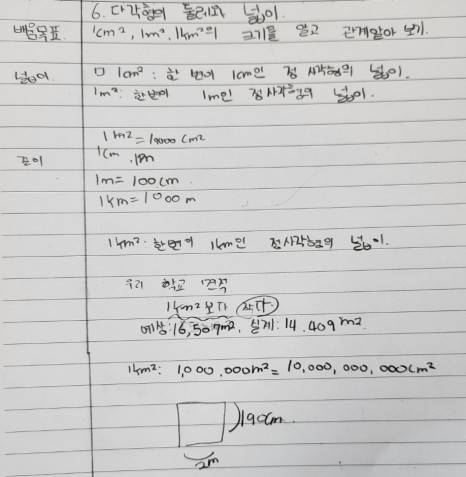 6. 다각형의 둘레와 넓이.
배움목표
1cm², 1m², 1km²의 크기를 알고 관계알아 보기.
넓이
□ 1cm²: 한 변이 1cm인 정사각형의 넓이.
1m²: 한변이 1m인 정사각형의 넓이.
1m²=10000cm²
1cm, 1m
1m=100cm
1km=1000m
1km²: 한변의 1km인 정사각형의 넓이.
우리 학교 면적
1km²보다 작다.
예상: 16,507m², 실제: 14.409m².
1km²: 1,000,000m²=10,000,000,000cm²
190cm
2m